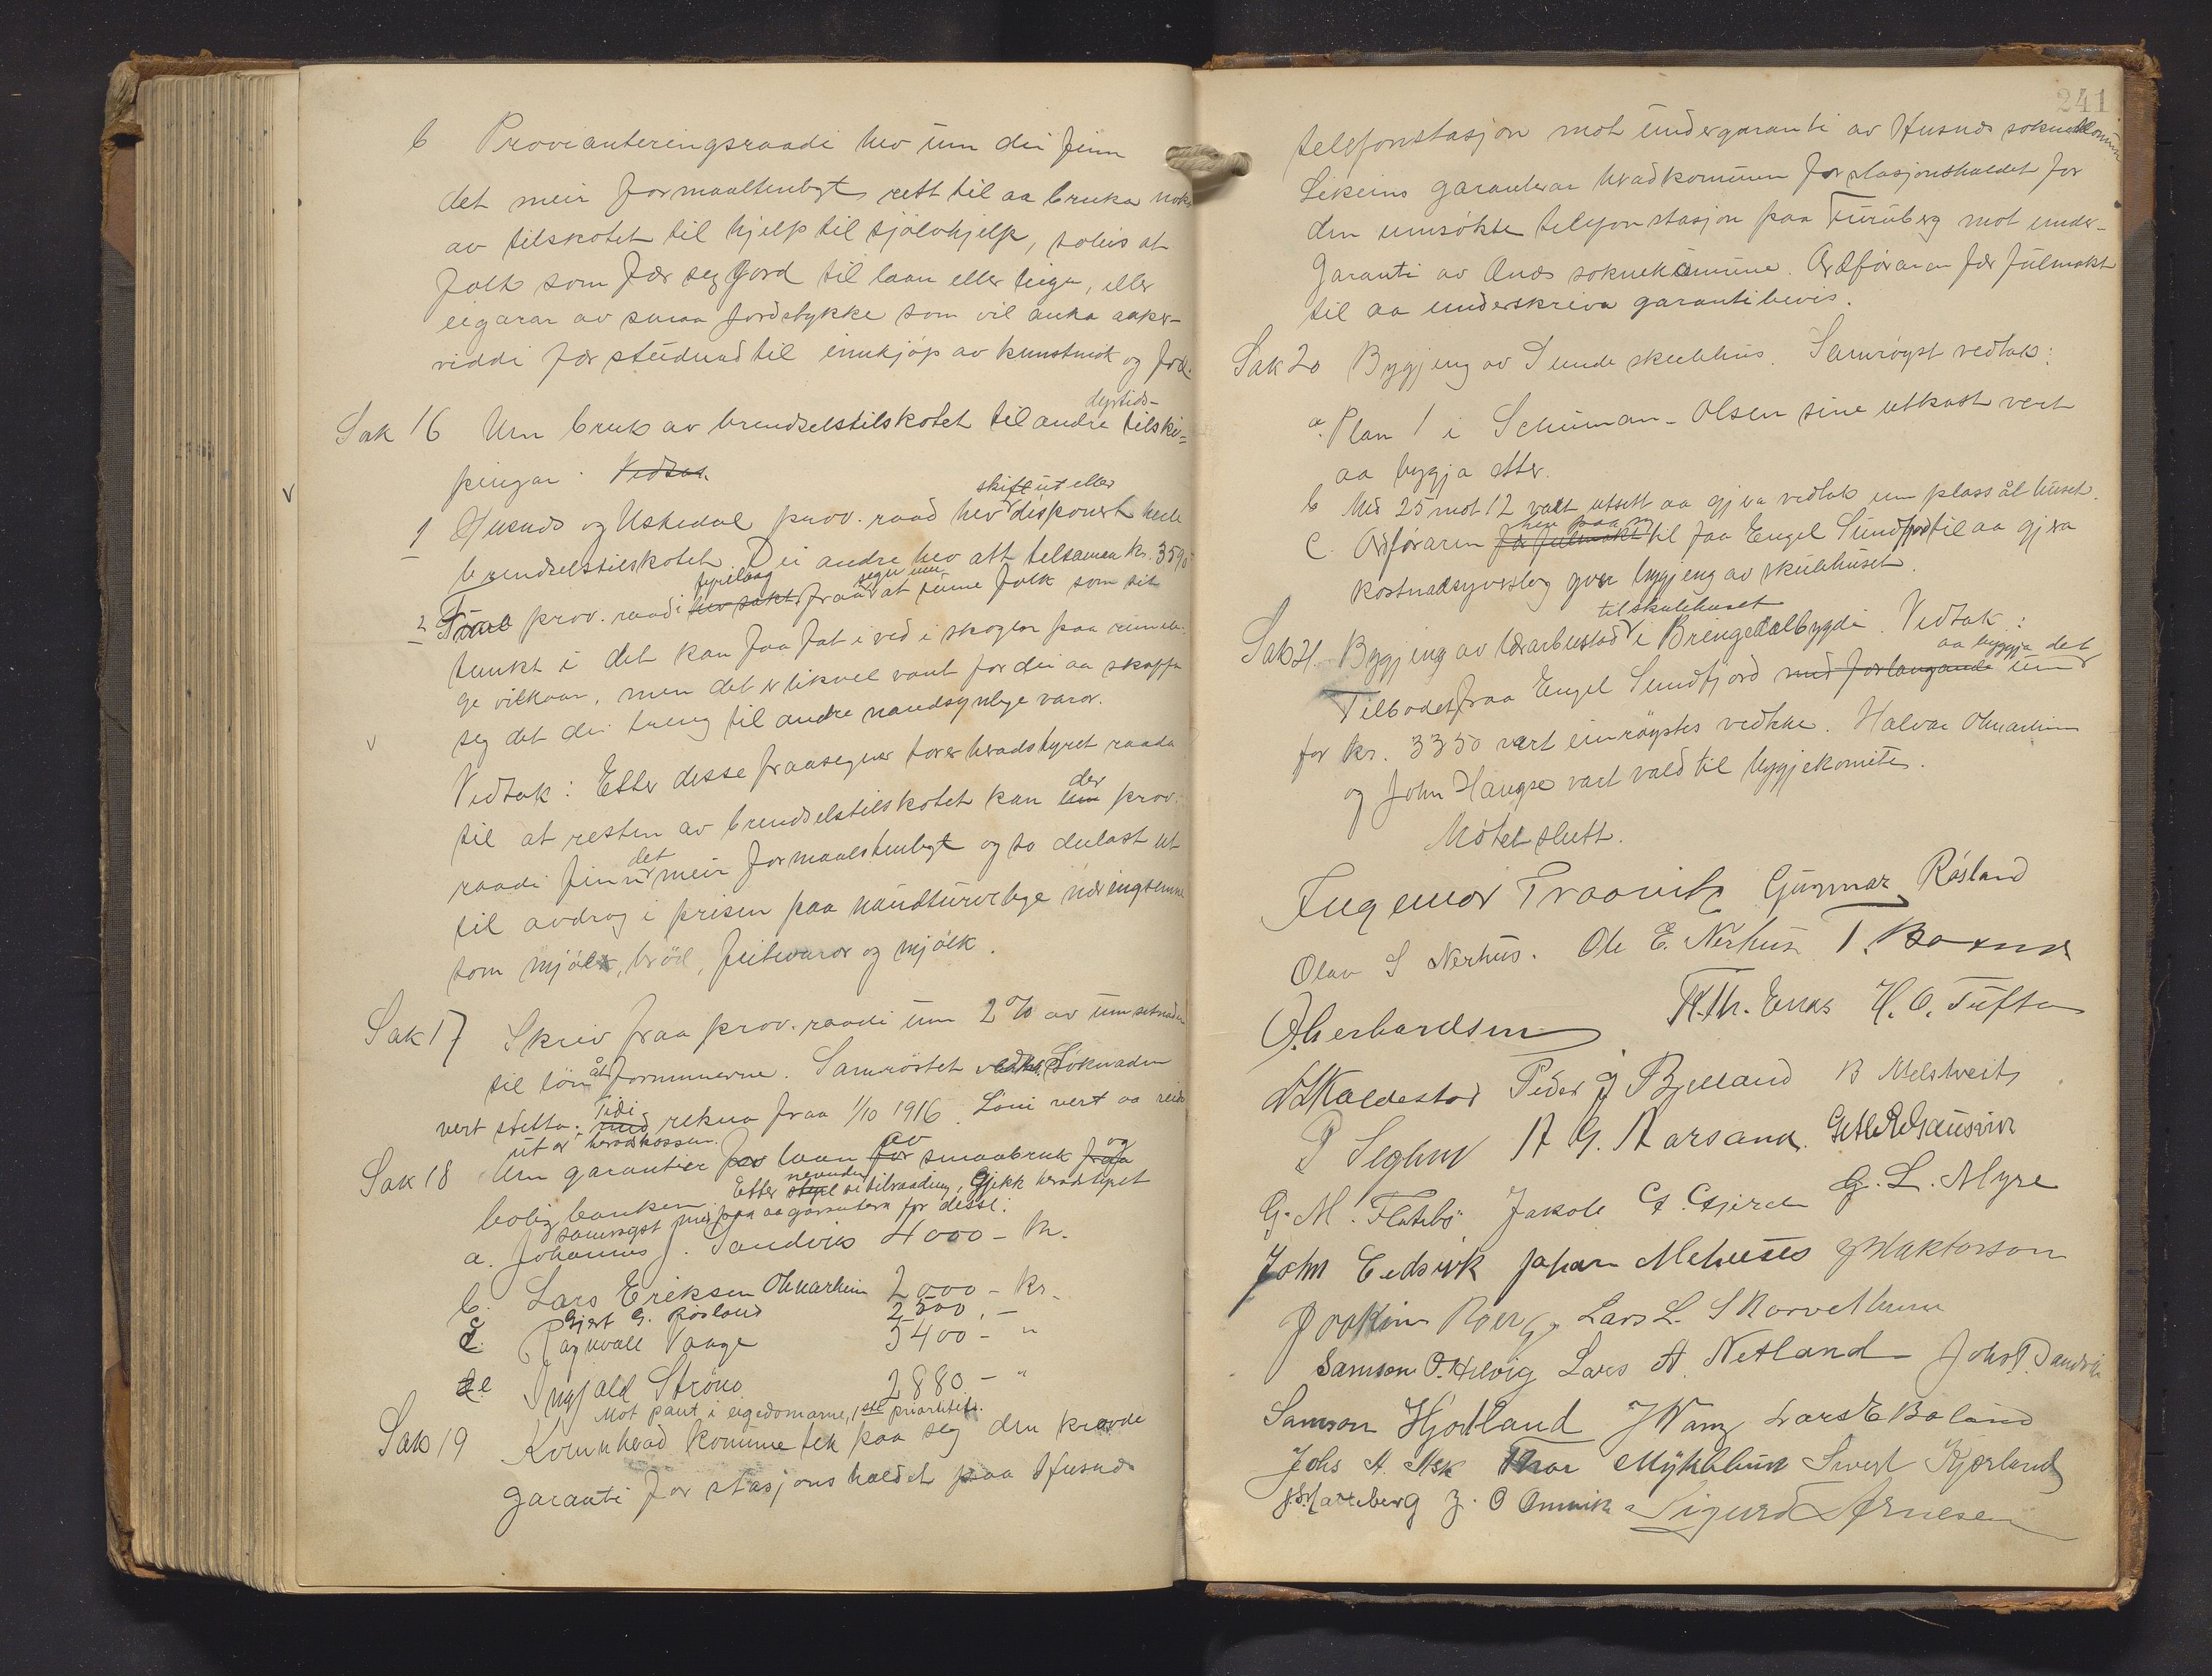 b Provianteringsraadi hev um dei finn
det meir formaaltenlegt rett til aa bruka noko
av tilskotet til hjelp til sjølvhjelp, soleis at
folk som fær seg jord til laan eller leiga, eller
eigarar av smaa jordstykke som vil auka aaker-
viddi fær studnad til innkjøp av kunstmøk og frø.
Sak 16 Um bruk av brendselstilskotet til andre dyrtids- tilski-
pingar. Vedtak
1 Husnes og Uskedal prov. raad hev skift ut eller disponert heile
brendselstilskotet. Dei andre hev att tilsaman kr. 3595
2 prov. raadi fyrelaag hev sakt fraa segn um at sume folk som sit
tenkt i det kan faa fat i ved i skogen paa rimele-
ge vilkaar, men det er likvel vant for dei aa skaffa
seg det dei treng til andre naudsynlege varor.
Vedtak: Etter desse fraasegner torer heradstyret raada
til at resten av brendselstilskotet kan der um prov.
raadi finn det meir formaalstenlegt og so delast ut
til avdrag i prisen paa naudturvelege næringsemne
som mjøl, brød, feitvaror og mjølk.
Sak 17 Skriv fraa prov. raadi um 2 % av umsetnaden
til løn åt formennerne. Samrøstet vedtak. Søknaden
vert stetta. Tidi med rekna fraa 1/10 1916. Løni vert aa reida
ut or heradskassen.
Sak 18 Um garantier for laan av for smaabruk og fraa
boligbanken. Etter nevnder si tilraading, gjekk heradstyret
samrøyst med paa aa garantera for desse:
a. Johannes J. Sandvik 4000 - kr.
b. Lars Eriksen Ohnarheim 2000 - kr.
c Gjert G. Røsland 2500,-
d. Ragnvald Vaage 3400 - "
e Ingjald Strøno 2880 - "
Mot pant i eigedomarne, 1ste prioritet.
Sak 19 Kvinnherad kommune tek paa seg den kravde
garanti for stasjonshaldet paa Husnes
241
telefonstasjon mot undergaranti av Husnes soknekomun
Likeins garanterar heradkommunen for stasjonshaldet for
den umsøkte telefonstasjon paa Furuberg mot under-
garanti av Ænes soknekomune. Ordføraren fær fulmakt
til aa underskriva garantibevis.
Sak 20 Bygjeng av Sunde skulehus. Samrøyst vedtak:
a. Plan 1 i Schuman-Olsen sine utkast vert
aa byggja etter.
b Med 25 mot 12 vart utsett aa gjera vedtak um plass åt huset.
c. Ordføraren fær fulmakt til faa Engel Sundfjord til aa gjera
kostnadsyverslag yver bygjeng av skulehuset.
Sak 21. Bygjeng av lærarbustad til skulehuset i Bringedalsbygdi. Vedtak:
Tilbodet fraa Engel Sundfjord med forlangande um aa byggja det
for kr. 3350 vart einrøystes vedteke. Halvar Ohnarheim
og John Haugse vart vald til byggjekomite.
Møtet slutt.
Ingemor Traavik Gunnar Røsland
Olav S Nerhus. Ole E. Nerhus T. Baxnes
O. Gerhardsen K. Th. Enæs H. O. Tufte
N Kaldestad Peder J Bjelland B Melstveit
P Seglem A G. Aarsand
G. M. Flatebø Jakob A. Gjerde G. L. Myre
John Eidsvik Johan Mehuus J Haktorson
Joakim Berge Lars L. Skorvetheim
Samson O. Helvig Lars A. Netland Johs P. Sandvik
Samson Hjortland J Vang Lars E Boland
Johs A. Ask Thor Myklebust Sivert Kjærland
J. O Omvik Sigurd Arnesen